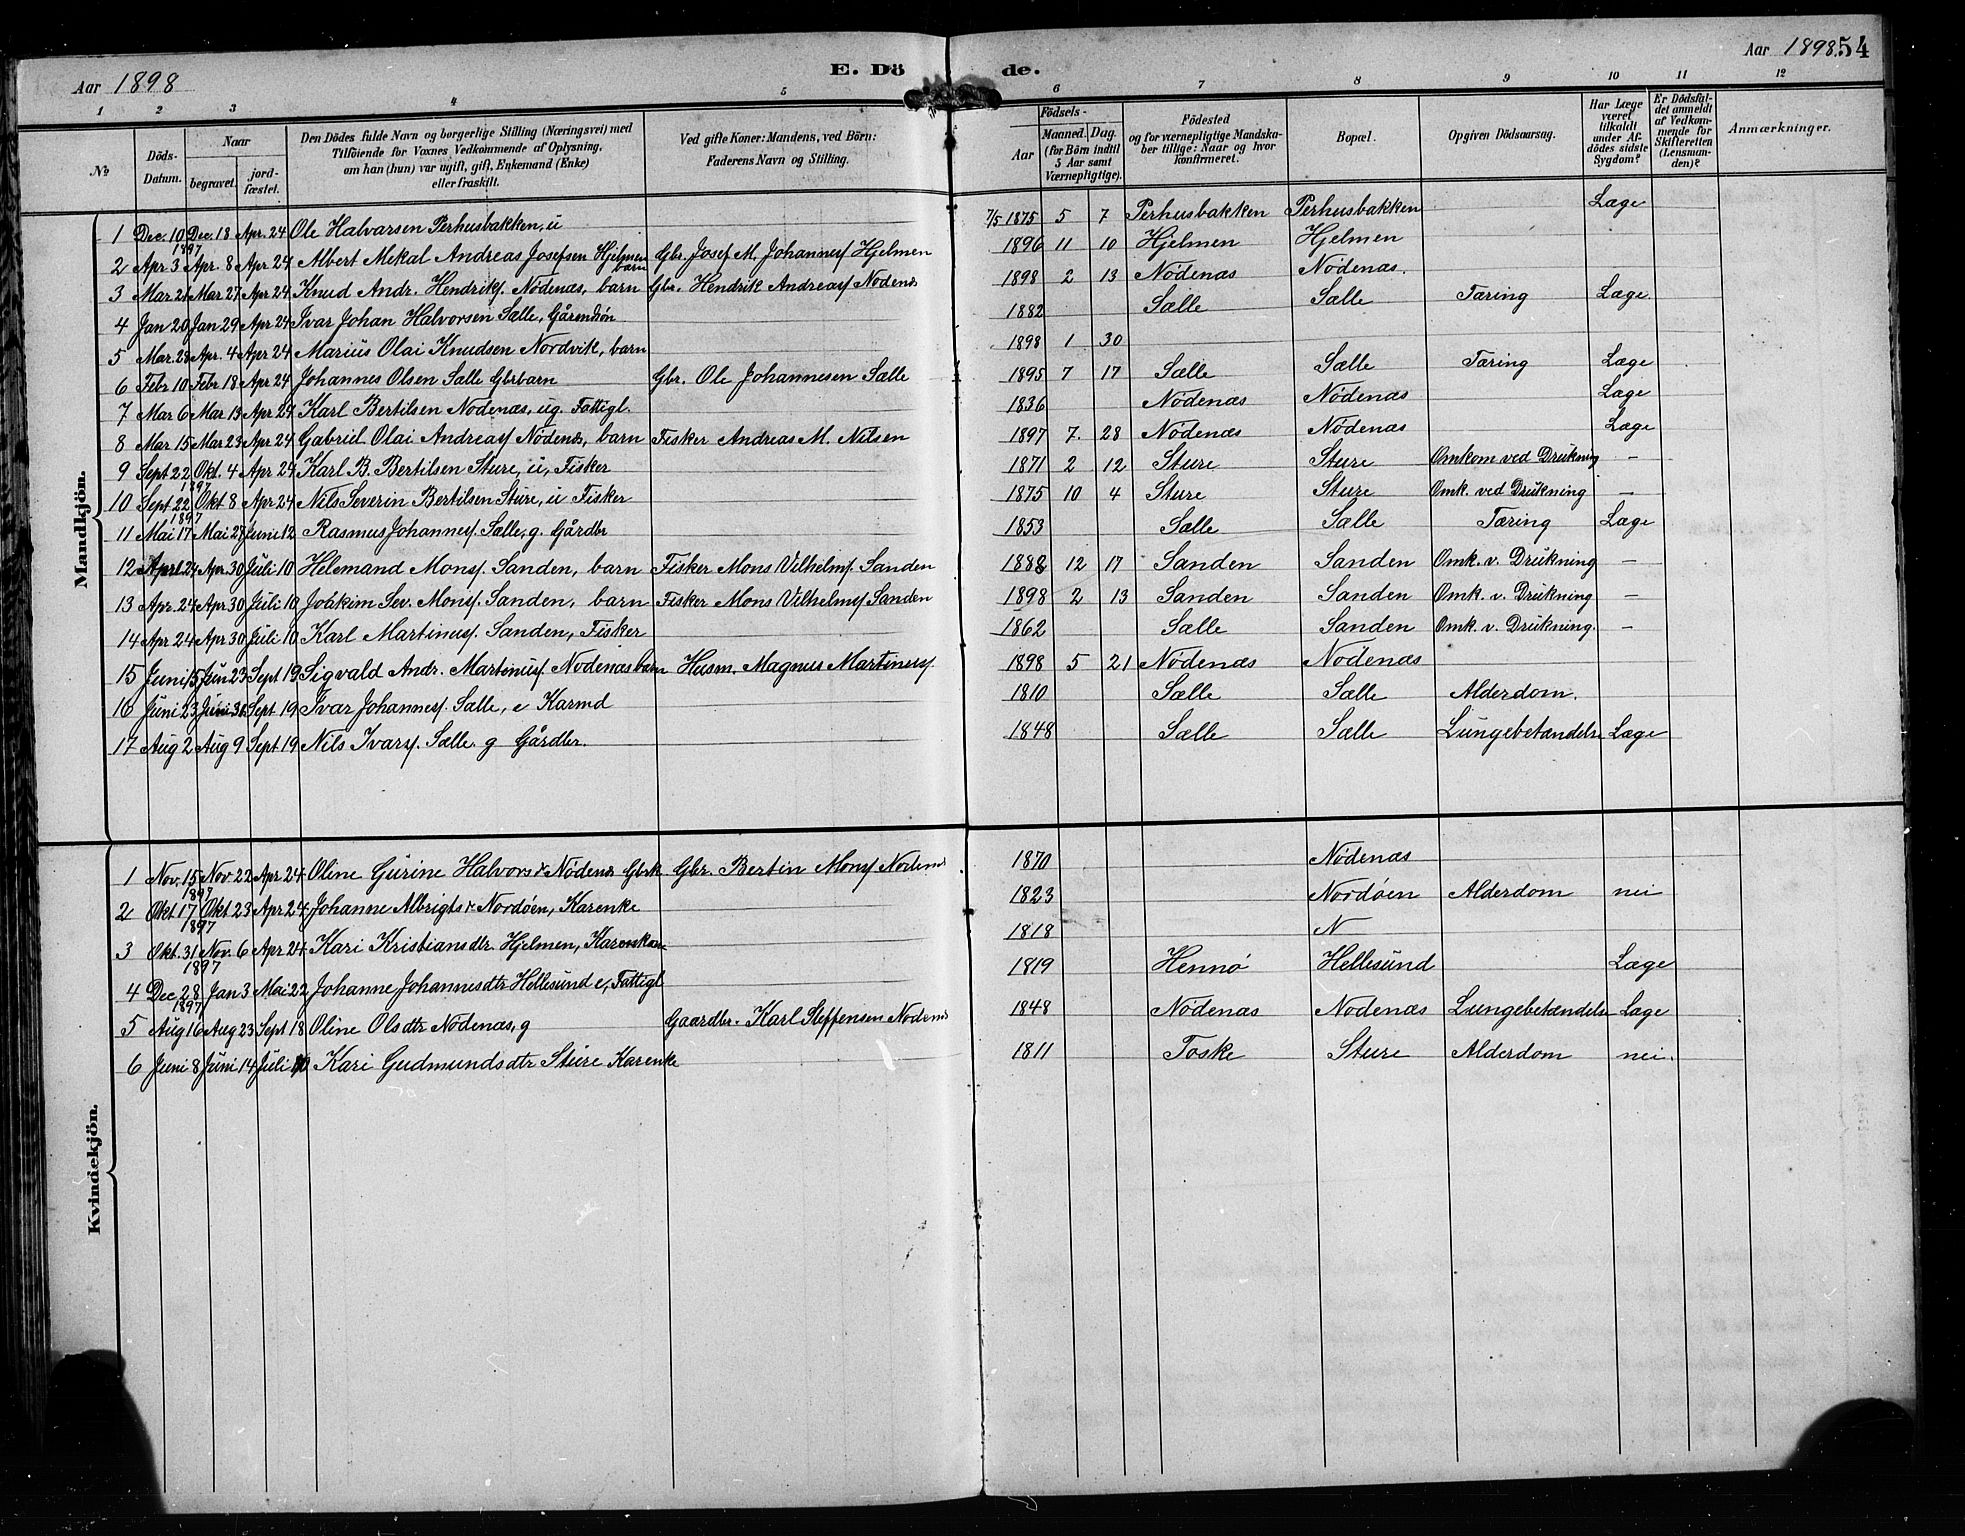 Aar 1898
E. Dö
1 2 3 4 5
№
Döds-Datum.
Naar
begravet.
jord-fæstet.
Den Dödes fulde Navn og borgerlige Stilling (Næringsvei) med
Tilföiende for Voxnes Vedkommende af Oplysning,
om han (hun) var ugift, gift, Enkemand (Enke)
eller fraskilt.
Ved gifte Koner: Mandens, ved Börn:
Faderens Navn og Stilling.
de.
Aar 1898. 54
6 7 8 9 10 11 12
Födsels-
Aar
Maaned. Dag.
(for Börn indtil
5 Aar samt
Værnepligtige).
Födested
og for værnepligtige Mandska-
ber tillige: Naar og hvor
konfirmeret.
Bopæl.
Opgiven Dödsaarsag.
Har Læge
været
tilkaldt
under Af-
dödes sidste
Sygdom?
Er Dödsfal-
det anmeldt
af Vedkom-
mende for
Skifteretten
(Lensman-
den)?
Anmærkninger.
Mandkjön.
1 Dec. 10 1897 Dec. 18 Apr. 24 Ole Halvarsen Perhusbakken, u 7/5 1875 5 7 Perhusbakken Perhusbakken Læge
2 Apr. 3 Apr. 8 Apr 24 Albert Mekal Andreas Josefsen Hjelmen barn Gbr. Josef M. Johannes Hjelmen 1896 11 10 Hjelmen Hjelmen
3 Mar 21 Mar 27 Apr 24 Knud Andr. Hendriks. Nødenæs, barn Gbr. Hendrik Andreas Nødenæs 1898 2 13 Nødenæs Nødenæs.
4 Jan 20 Jan 29 Apr 24 Ivar Johan Halvorsen Sælle, Gårdmsøn 1882 Sælle Sælle Tæring Læge
5 Mar. 28 Apr. 4 Apr 24 Marius Olai Knudsen Nordvik, barn 1898 1 30
6 Febr 10 Febr 18 Apr 24 Johannes Olsen Sælle Gbrbarn Gbr. Ole Johannesen Sælle 1895 7 17 Sælle Sælle Tæring Læge
7 Mar 6 Mar 13 Apr 24 Karl Bertilsen Nødenæs, ug. Fattigl. 1836 Nødenæs Nødenæs Læge
8 Mar 15 Mar 23 Apr 24 Gabriel Olai Andreas Nødenæs, barn Fisker Andreas M. Nilsen 1897 7. 28 Nødenæs Nødenæs Læge
9 Sept 22 1897 Okt. 4 Apr 24 Karl B. Bertilsen Sture, u, Fisker 1871 2 12 Sture Sture Omkom ved Drukning —
10 Sept 22 1897 Okt 8 Apr 24 Nils Severin Bertilsen Sture, u Fisker 1875 10 4 Sture Sture Omk. ved Drukning —
11 Mai 17 Mai 27 Juni 12 Rasmus Johannes. Sælle, g. Gårdbr 1853 Sælle Sælle Tæring Læge
12 Apr 24 Apr. 30 Juli 10 Helemand Mons. Sanden, barn Fisker Mons Vilhelms Sanden 1888 12 17 Sanden Sanden Omk. v. Drukning —
13 Apr. 24 Apr 30 Juli 10 Joakim Sev. Mons. Sanden, barn Fisker Mons Vilhelms Sanden 1898 2 13 Sanden Sanden Omk. v. Drukning —
14 Apr 24 Apr 30 Juli 10 Karl Martinus. Sanden, Fisker 1862 Sælle Sanden Omk. v. Drukning. —
15 Juni 15 Jun 23 Sept 19 Sigvald Andr. Martinus. Nødenæs barn Husm. Magnus Martinus. 1898 5 21 Nødenæs Nødenæs
16 Juni 23 Juni 30 Sept 19 Ivar Johannes. Sælle, e Karmd 1810 Sælle Sælle Alderdom.
17 Aug 2 Aug 9 Sept 19 Nils Ivars. Sælle. g Gårdbr. 1848 Sælle Sælle Lungebetændelse Læge
Kvindekjön.
1 Nov. 15 1897 Nov 22 Apr 24 Oline Gurine Halvorsdr Nødenæs Gbrk Gbr. Bertin Mons Nødenæs 1870 Nødenæs
2 Okt 17 1897 Okt 23 Apr 24 Johanne Albrigtsdr Nordøen, Karenke 1823 Nordøen Alderdom nei
3 Okt. 31 1897 Nov. 6 Apr 24 Kari Kristiansdtr. Hjelmen, Karenkone 1818 N
4 Dec 28 1897 Jan 3 Mai 22 Johanne Johannesdtr Hellesund e, Fattigl 1819 Hennø Hellesund Læge
5 Aug 16 Aug 23 Sept 18 Oline Olsdtr Nødenæs, g Gaardbr. Karl Steffensen Nødenæs 1848 Nødenæs Nødenæs Lungebetændelse Læge
6 Juni 8 Juni 14 Juli 10 Kari Gudmundsdtr Sture Karenke 1811 Toske Sture Alderdom nei.